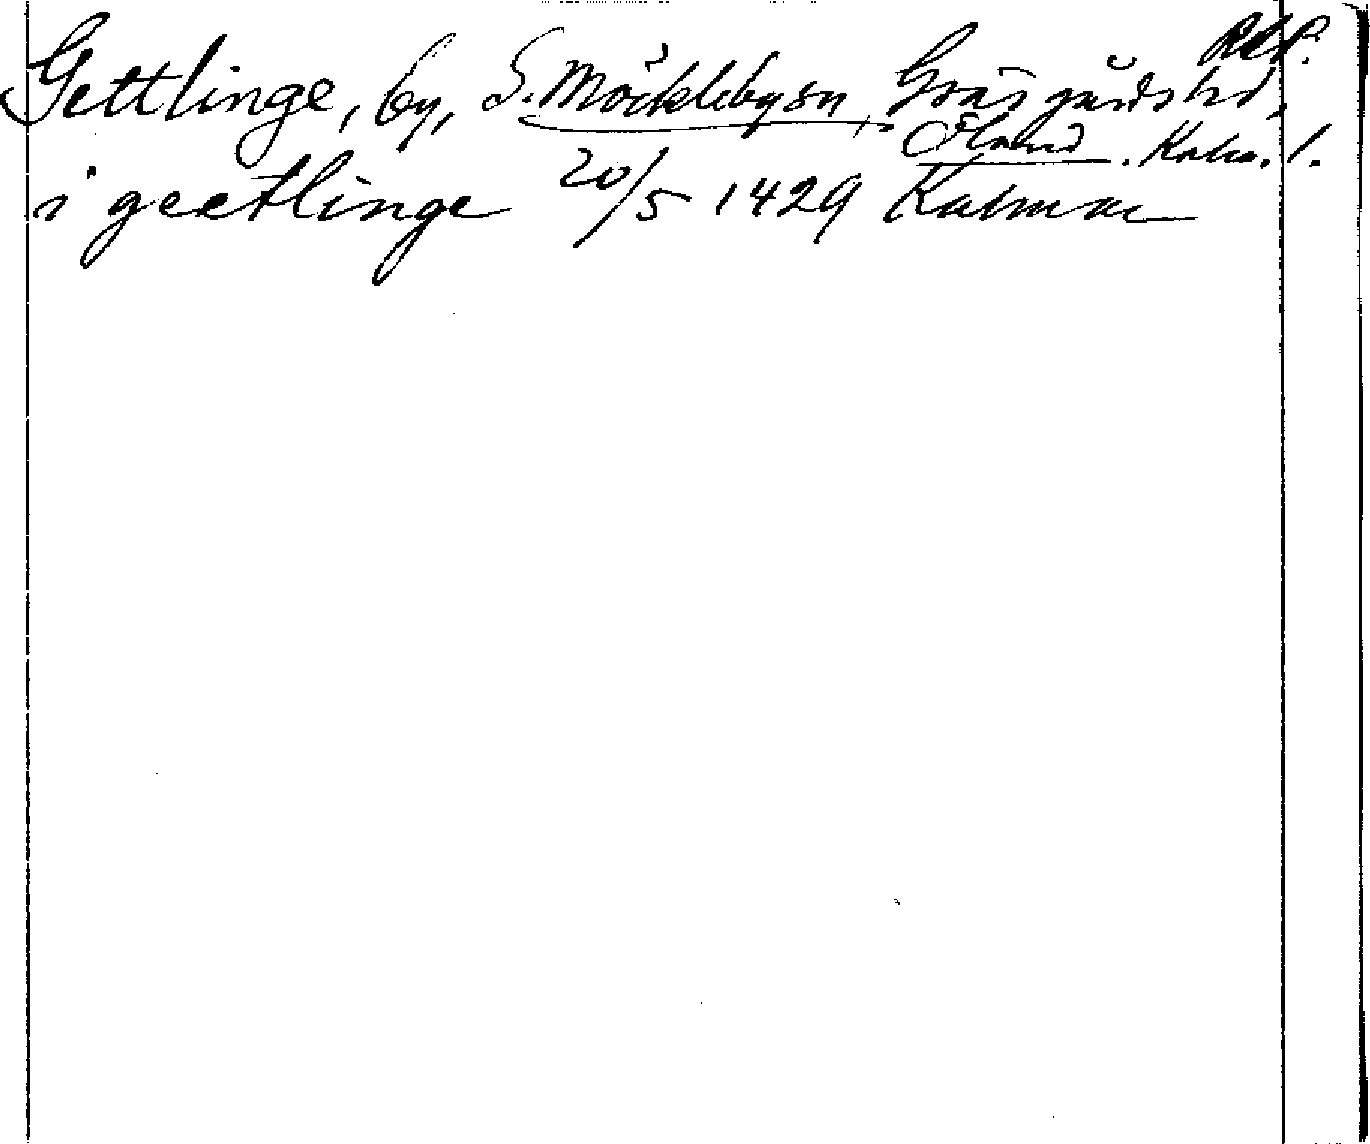 RAP.
Gettlinge, by, S. Möcklebysn, Gräsgårds hd,
Öland. Kalm. l.
i geetlinge 20/5 1429 Kalmar